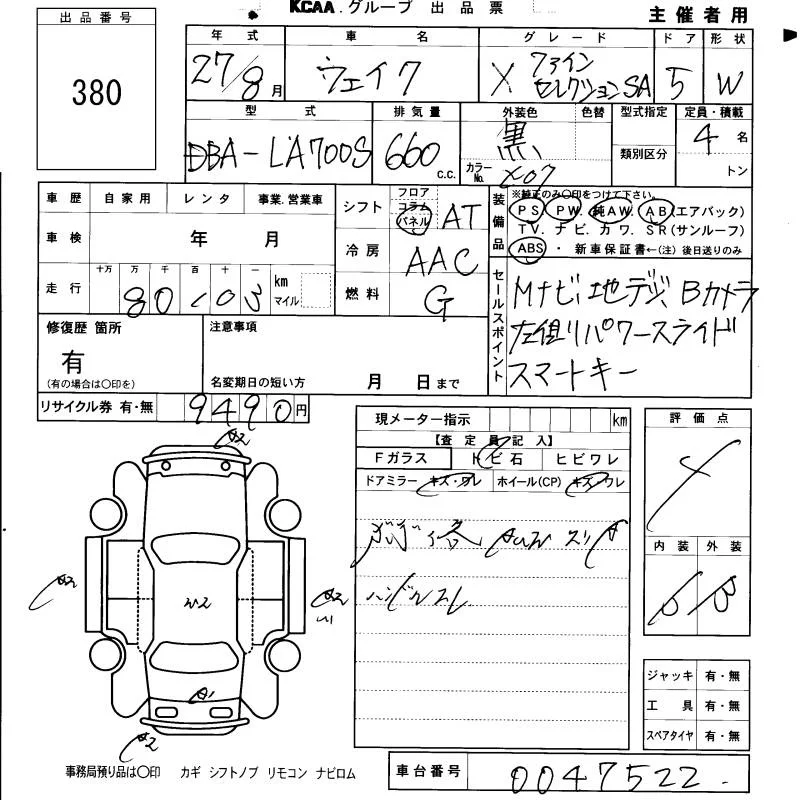 KCAA.グループ 出品票
主催者用
出品番号
380
年式 車名 グレード ドア 形状
27/8月 ウェイク X ファインセレクションSA 5 W
型式 排気量 外装色 色替 型式指定 定員・積載
DBA-LA700S 660 c.c. 黒 カラーNo. X07 類別区分 4名
トン
車歴 自家用 レンタ 事業.営業車
車検 年 月
走行 十万 万 千 百 十 一 km マイル
80103
シフト フロア コラム パネル AT
冷房 AAC
燃料 G
装備品 ※純正のみ○印をつけて下さい。
PS. PW. 純AW. AB(エアバック)
TV. ナビ. カワ. SR(サンルーフ)
ABS ・ 新車保証書←(注) 後日送りのみ
セールスポイント
Mナビ、地デジ、Bカメラ
左側パワースライド
スマートキー
修復歴 箇所
有
(有の場合は○印を)
注意事項
名変期日の短い方 月 日まで
リサイクル券 有・無 9490円
現メーター指示 km
【査定員記入】
Fガラス トビ石 ヒビワレ
ドアミラー キズ・ワレ ホイール(CP) キズ・ワレ
ハンドルスレ
評価点
4
内装 外装
B
ジャッキ 有・無
工具 有・無
スペアタイヤ 有・無
A2
A2
A2
A1
A2
事務局預り品は○印 カギ シフトノブ リモコン ナビロム
車台番号 0047522